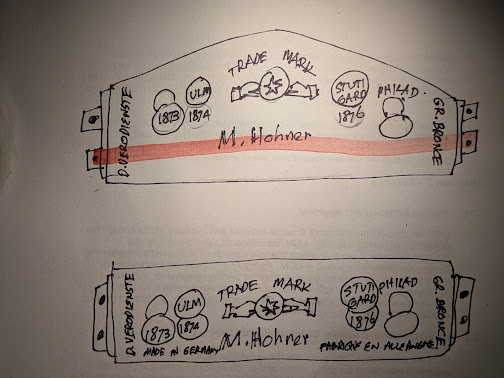 TRADE MARK
D. VERODIENSTE
1873
ULM
1874
STUTT
GARD
1876
PHILAD.
GR. BRONCE
M. Hohner
TRADE MARK
D. VERODIENSTE
1873
ULM
1874
STUTI
GARD
1876
PHILAD
GR. BRONCE
MADE IN GERMANY
M. Hohner
EN